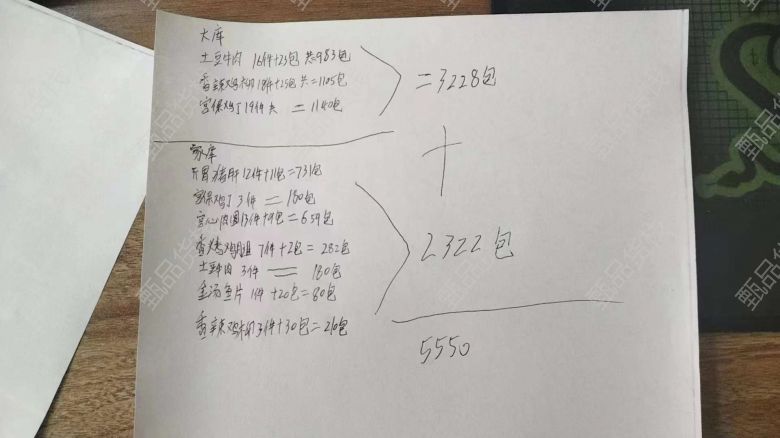 大库
土豆牛肉 16件+23包 共983包
香辣鸡柳18件+25包 共=1105包
宫保鸡丁19件共 =1140包
=3228包
+
家库
开胃猪肝12件+11包=731包
宫保鸡丁3件=180包
空心肉圆13件+9包=659包
香烤鸡腿 7件+2包=282包
土豆牛肉 3件=180包
金汤鱼片 1件+20包=80包
香辣鸡柳3件+30包=210包
2322包
5550